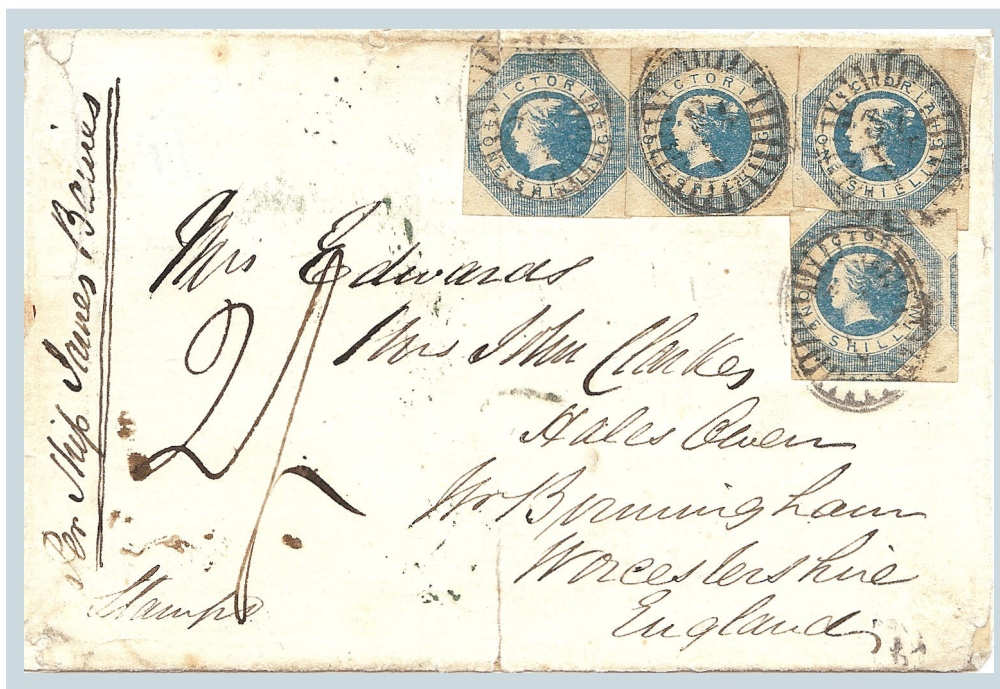 VICTORIA
ONE SHILLING
VICTORIA
ONE SHILLING
VICTORIA
ONE SHILLING
VICTORIA
ONE SHILLING
Per Ship James Baines
Mrs Edwards
Mrs John Clarkes
Hales Owen
Nr Birmingham
Worcestershire
England
2/-
Stamps